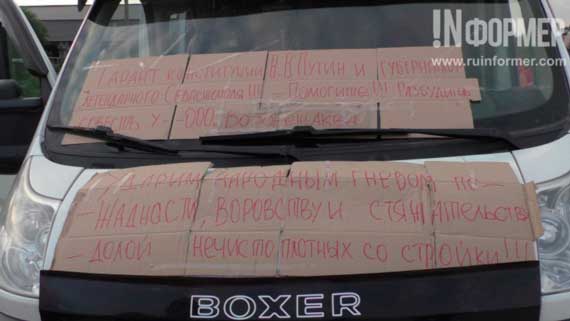 !NФОРМЕР
www.ruinformer.com
ГАРАНТ КОНСТИТУЦИИ В.В ПУТИН И ГУБЕРНАТОР
ЛЕГЕНДАРНОГО СЕВАСТОПОЛЯ!!! – ПОМОГИТЕ!!! РАЗБУДИТЬ
СОВЕСТЬ У - ООО,
УДАРИМ НАРОДНЫМ ГНЕВОМ ПО –
– ЖАДНОСТИ, ВОРОВСТВУ И СТЯЖАТЕЛЬСТВУ
– ДОЛОЙ НЕЧИСТОПЛОТНЫХ СО СТРОЙКИ!!!
BOXER